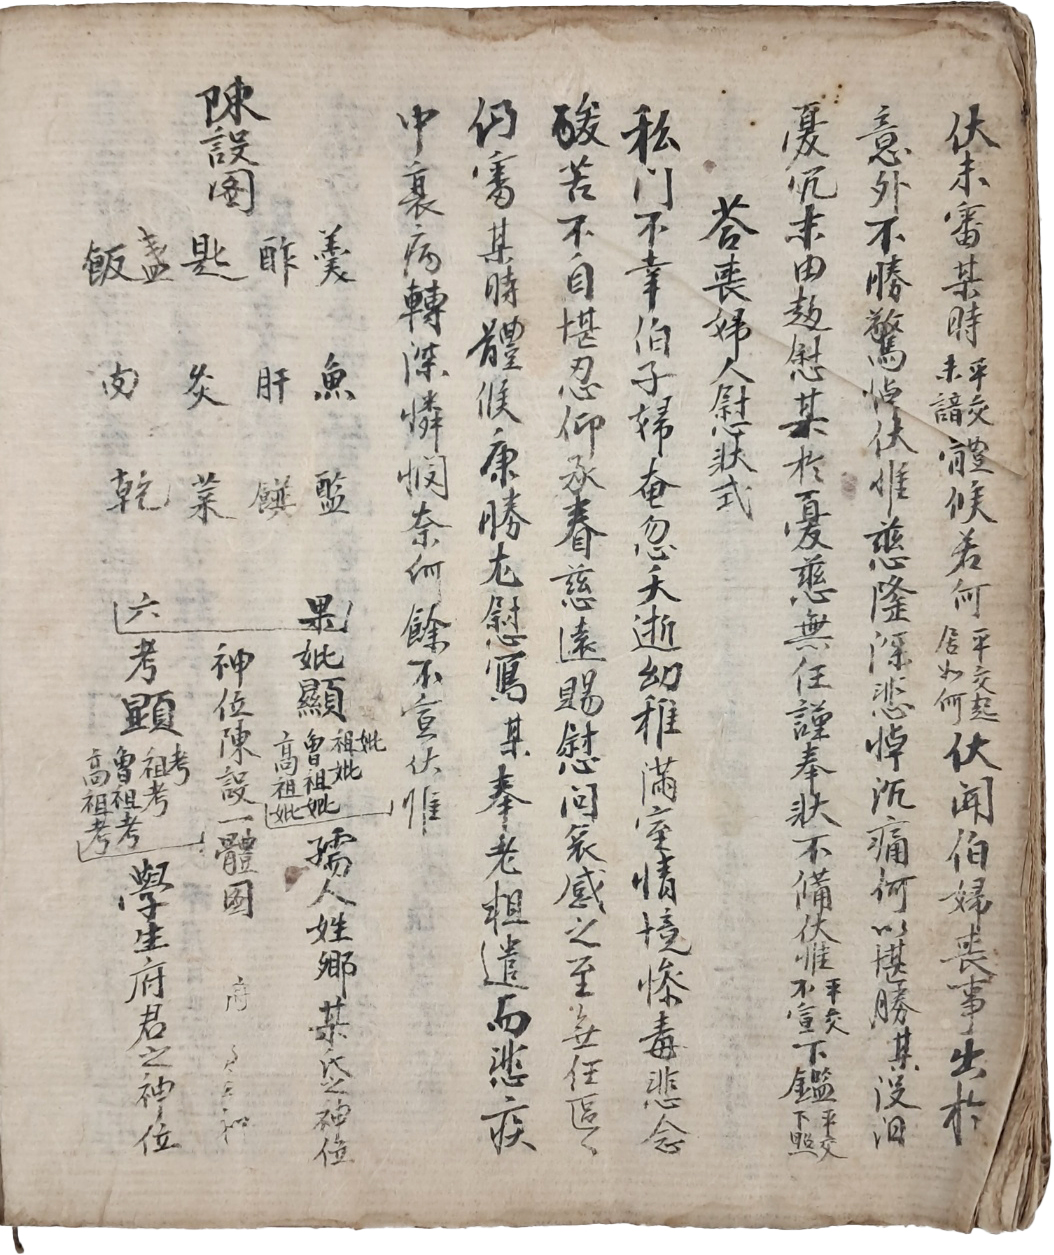 伏未審某時平交未諳體候若何平交起居如何伏聞伯婦喪事出於
意外不勝驚悼伏惟慈隆深悲悼沉痛何以堪勝某沒汩
憂冗未由趍慰某於憂慈無任謹奉狀不備伏惟平交不宣下鑑平交下照
荅喪婦人慰狀式
私門不幸伯子婦奄忽夭逝幼稚滿室情境慘毒悲念
酸苦不自堪忍仰承眷慈遠賜慰問哀感之至無任區區
仍審某時體候康勝尤慰寫某奉老粗遣而悲疚
中襄病轉深憐憫奈何餘不宣伏惟
陳設圖
羹 魚 醢 果
酢 肝 饌
匙 炙 菜
盞
飯 肉 乾 六
妣顯祖妣 曾祖妣 高祖妣孺人姓鄕某氏之神位
神位陳設一體圖
考顯祖考 曾祖考 高祖考學生府君之神位